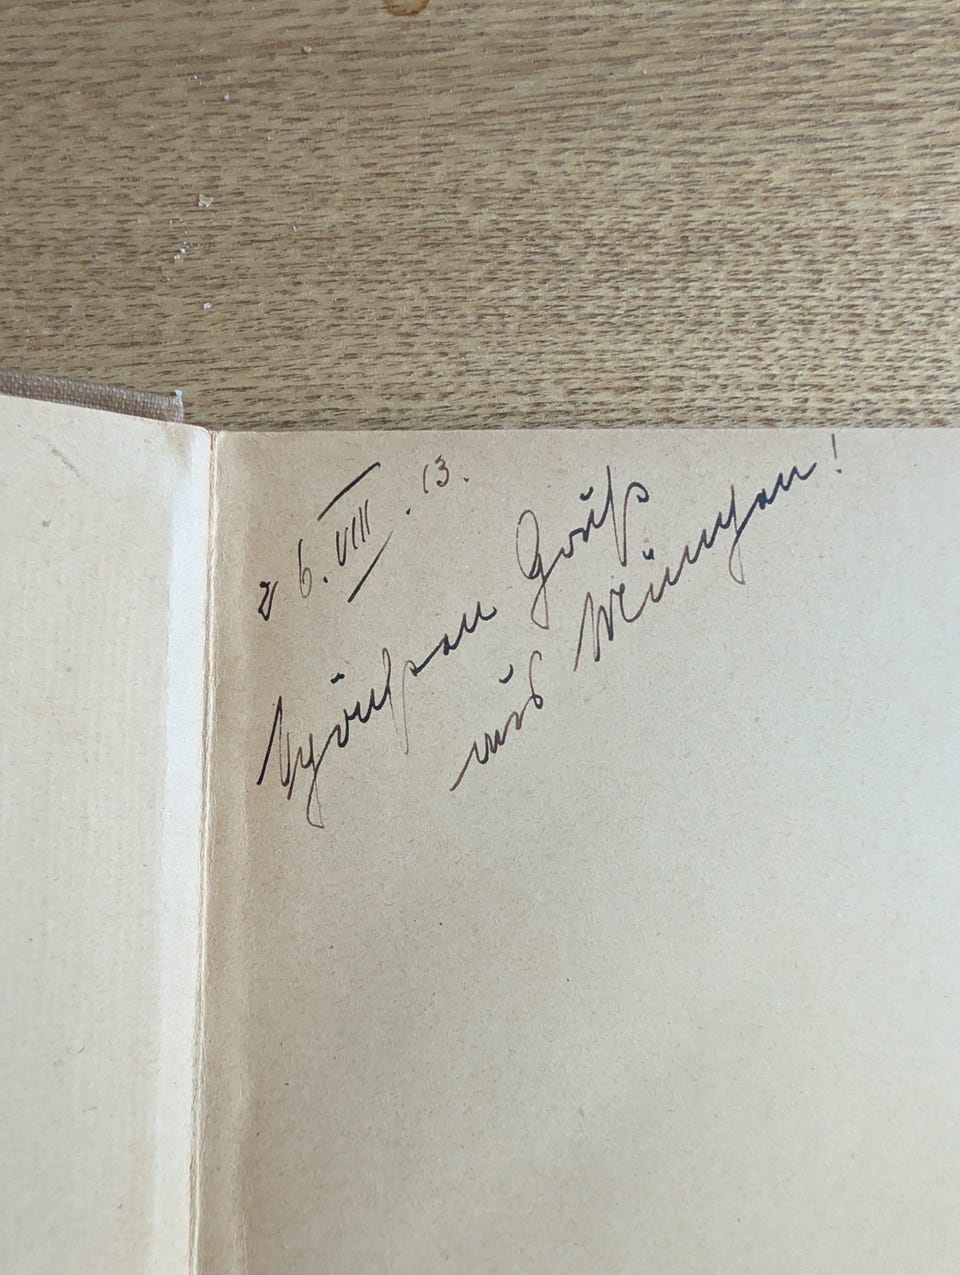 26.VIII.13.
Schönsten Gruß
aus München!